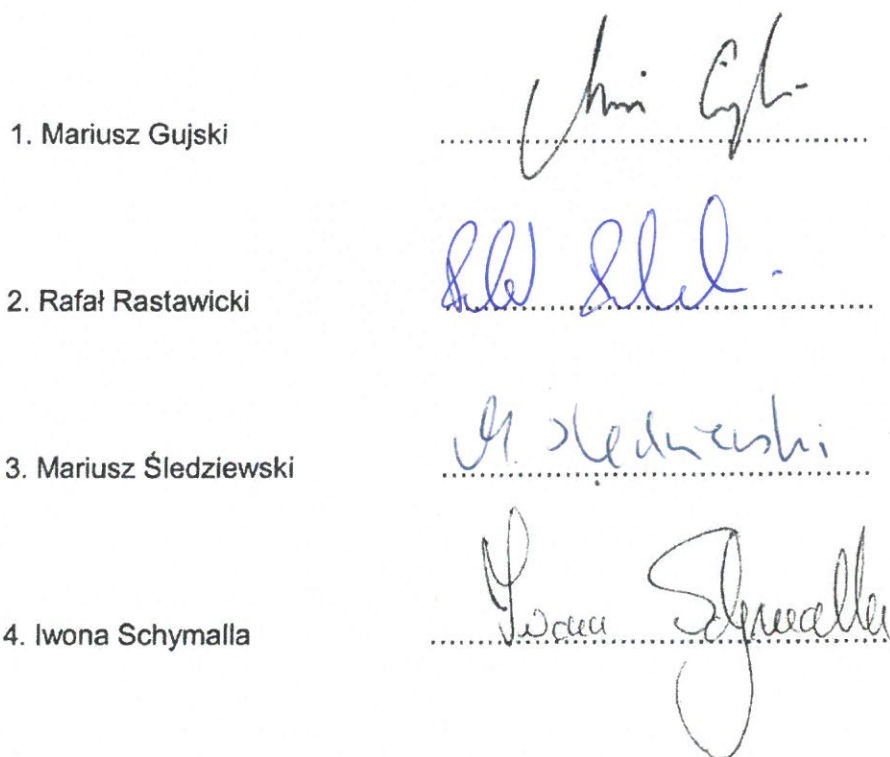 1. Mariusz Gujski ..........................................
2. Rafał Rastawicki ..........................................
3. Mariusz Śledziewski ..........................................
M. Śledziewski
4. Iwona Schymalla ..........................................
Iwona Schymalla